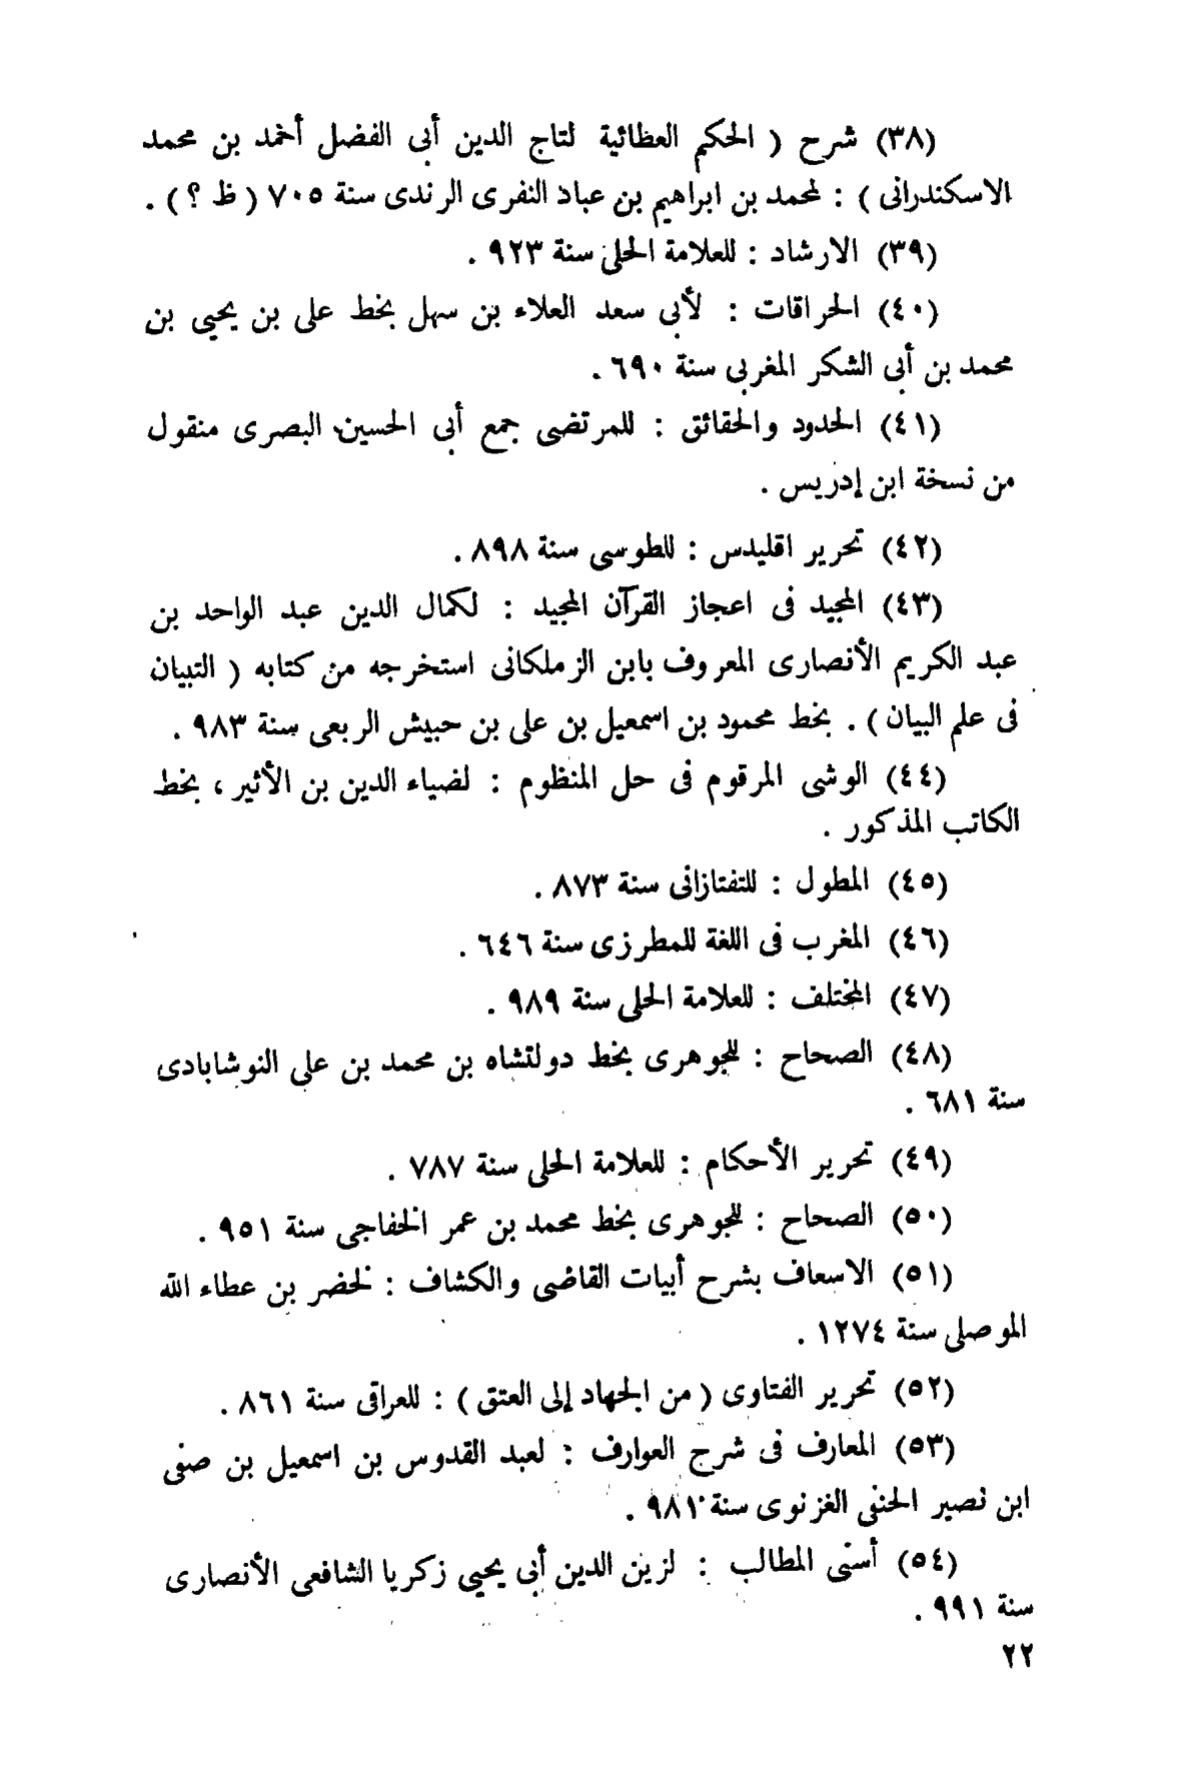 (٣٨) شرح ( الحكم العظائية لتاج الدين أبى الفضل أحمد بن محمد
الاسكندرانى ) : لمحمد بن ابراهيم بن عباد النفرى الرندى سنة ٧٠٥ ( ظ ؟ ) .
(٣٩) الارشاد : للعلامة الحلى سنة ٩٢٣ .
(٤٠) الحراقات : لأبى سعد العلاء بن سهل بخط على بن يحيى بن
محمد بن أبى الشكر المغربى سنة ٦٩٠ .
(٤١) الحدود والحقائق : للمرتضى جمع أبى الحسين البصرى منقول
من نسخة ابن إدريس .
(٤٢) تحرير اقليدس : للطوسى سنة ٨٩٨ .
(٤٣) المجيد فى اعجاز القرآن المجيد : لكمال الدين عبد الواحد بن
عبد الكريم الأنصارى المعروف بابن الزملكانى استخرجه من كتابه ( التبيان
فى علم البيان ) . بخط محمود بن اسمعيل بن على بن حبيش الربعى سنة ٩٨٣ .
(٤٤) الوشى المرقوم فى حل المنظوم : لضياء الدين بن الأثير ، بخط
الكاتب المذكور .
(٤٥) المطول : للتفتازانى سنة ٨٧٣ .
(٤٦) المغرب فى اللغة للمطرزى سنة ٦٤٦ .
(٤٧) المختلف : للعلامة الحلى سنة ٩٨٩ .
(٤٨) الصحاح : للجوهرى بخط دولتشاه بن محمد بن على النوشابادى
سنة ٦٨١ .
(٤٩) تحرير الأحكام : للعلامة الحلى سنة ٧٨٧ .
(٥٠) الصحاح : للجوهرى بخط محمد بن عمر الخفاجى سنة ٩٥١ .
(٥١) الاسعاف بشرح أبيات القاضى والكشاف : لخضر بن عطاء الله
الموصلى سنة ١٢٧٤ .
(٥٢) تحرير الفتاوى ( من الجهاد إلى العتق ) : للعراقى سنة ٨٦١ .
(٥٣) المعارف فى شرح العوارف : لعبد القدوس بن اسمعيل بن صفى
ابن نصير الحنفى الغزنوى سنة ٩٨١ .
(٥٤) أسنى المطالب : لزين الدين أبى يحيى زكريا الشافعى الأنصارى
سنة ٩٩١ .
٢٢